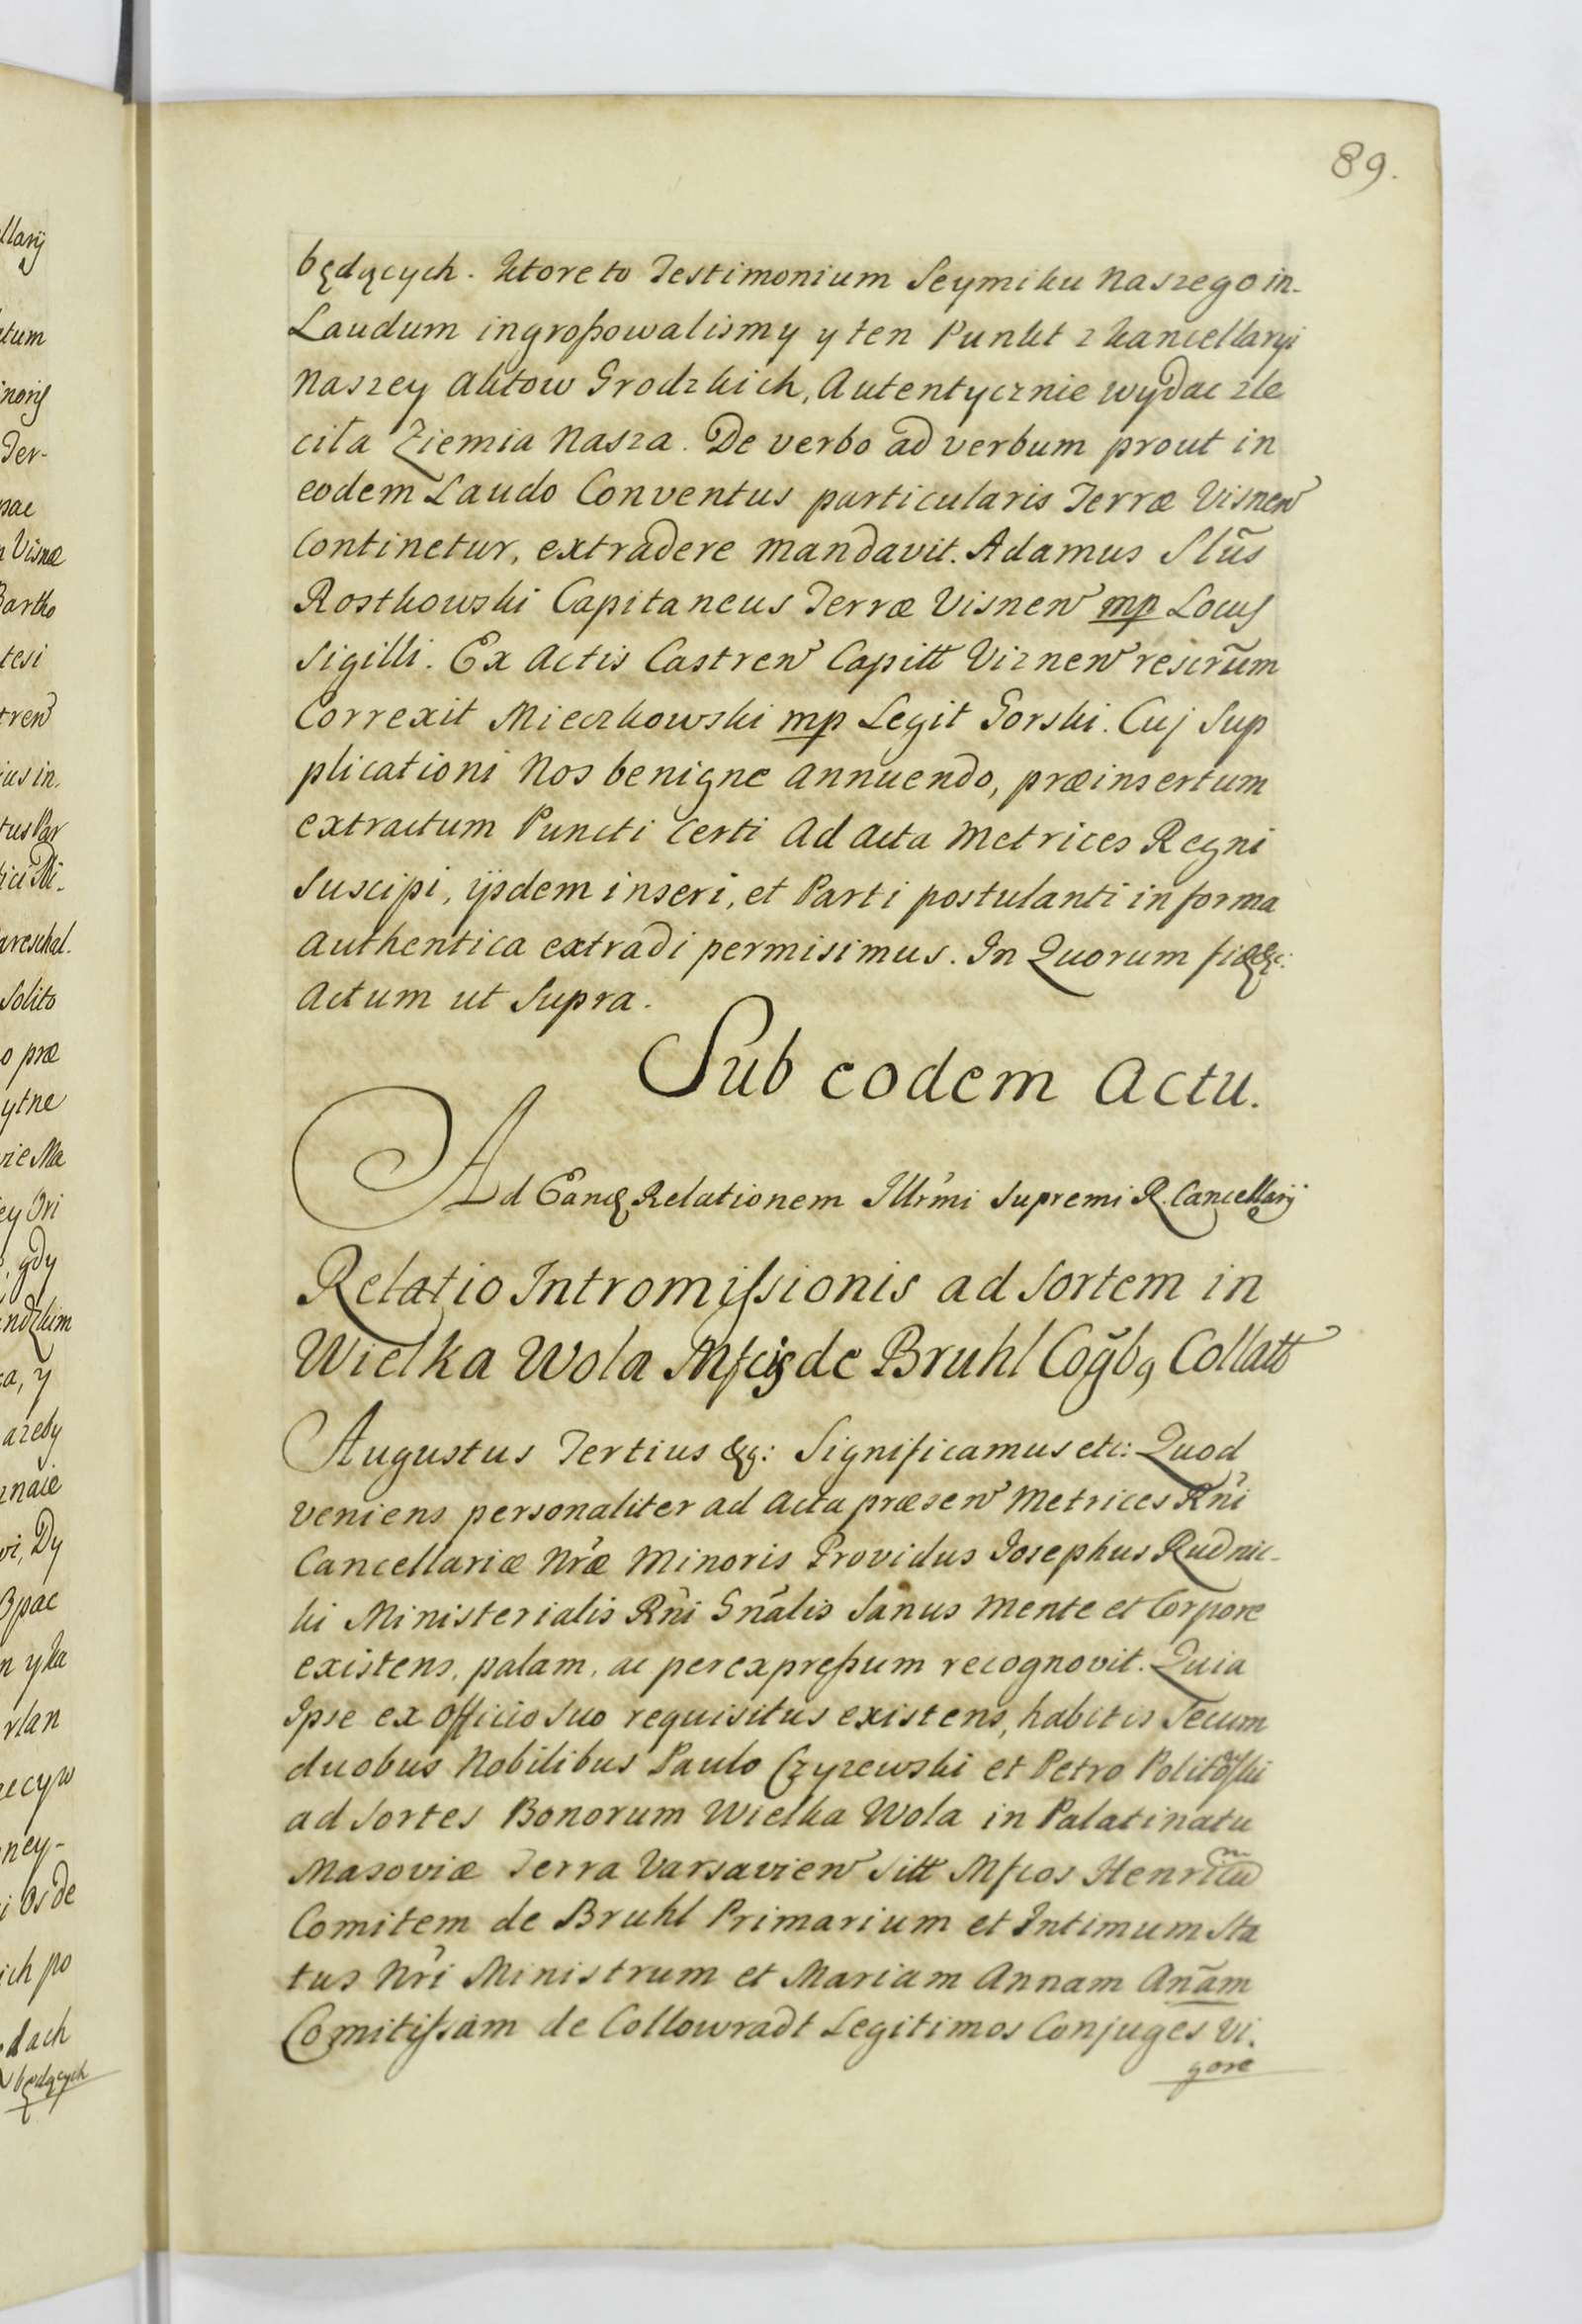 89.
będących. Ktore to Testimonium Seymiku Naszego in-
Laudum ingroßowalismy y ten Punkt z kancellaryi
Naszey Aktow Grodzkich, Autentycznie wydac zle
ciła Ziemia Nasza. De verbo ad verbum prout in
eodem Laudo Conventus particularis Terræ Visnen
Continetur, extradere mandavit. Adamus Stũs
Rostkowski Capitaneus Terræ Visnen mp Locus
Sigilli. Ex Actis Castren Capitt Viznen rescrũm
Correxit Mieczkowski mp Legit Gorski. Cuj Sup
plicationi Nos benigne annuendo, præinsertum
extractum Puncti Certi Ad Acta Metrices Regni
Suscipi, ijsdem inseri, et Parti postulanti in forma
Authentica extradi permisimus. In Quorum fid &c:
Actum ut Supra.
Sub eodem Actu.
Ad Eandq Relationem Illr̃mi Supremi R. Cancellarij
Relatio Intromißionis ad Sortem in
Wielka Wola Mfcis de Bruhl Cog̃bq Collatt
Augustus Tertius &c: Significamus etc: Quod
veniens personaliter ad Acta præsen Metrices Rñi
Cancellariæ Nr̃æ Minoris Providus Josephus Rudnic-
ki Ministerialis Rñi Gñalis Sanus Mente et Corpore
existens, palam, ac per expreßum recognovit. Quia
Ipse ex Officio Suo requisitus existens, habitis Secum
duobus Nobilibus Paulo Czyzewski et Petro
ad Sortes Bonorum Wielka Wola in Palatinatu
Masoviæ Terra Varsavien Sitt Mfcos Henricum
Comitem de Bruhl Primarium et Intimum Sta
tus Nr̃i Ministrum et Mariam Annam Añam
Comitißam de Collowradt Legitimos Conjuges Vi.
gore